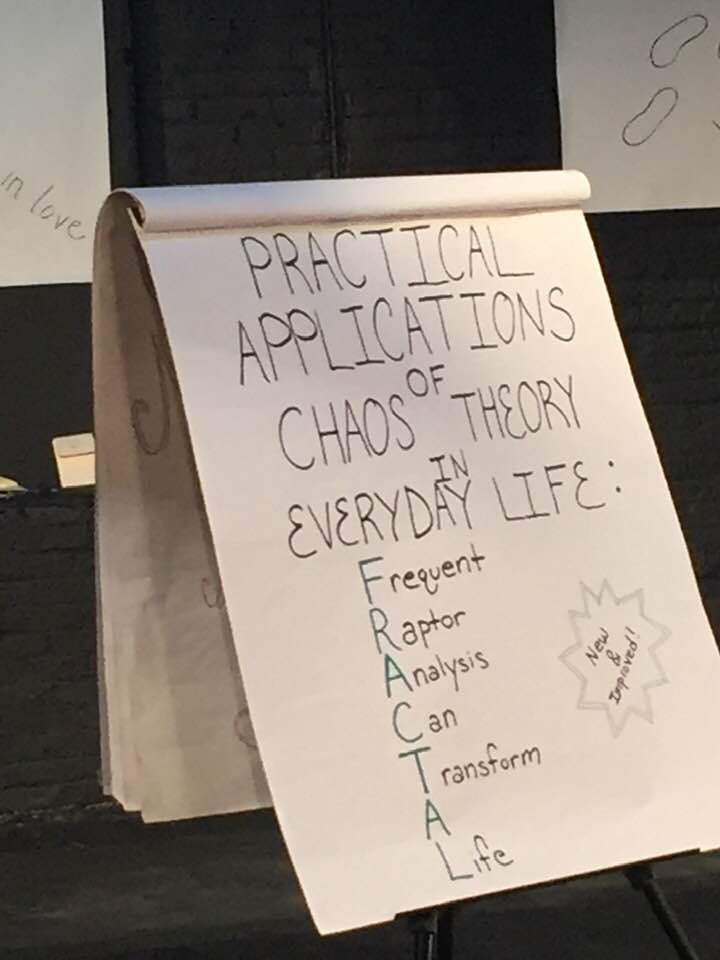 in love
PRACTICAL
APPLICATIONS
OF
CHAOS THEORY
IN
EVERYDAY LIFE:
Frequent
Raptor
Analysis
Can
Transform
A
Life
New
&
Improved!